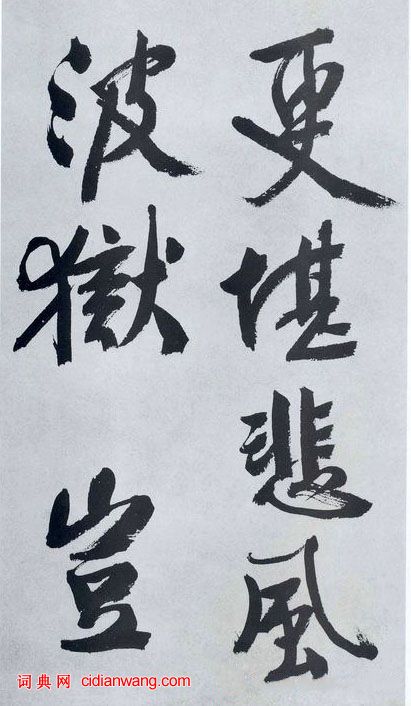 更堪悲風
波獄豈
词典网 cidianwang.com